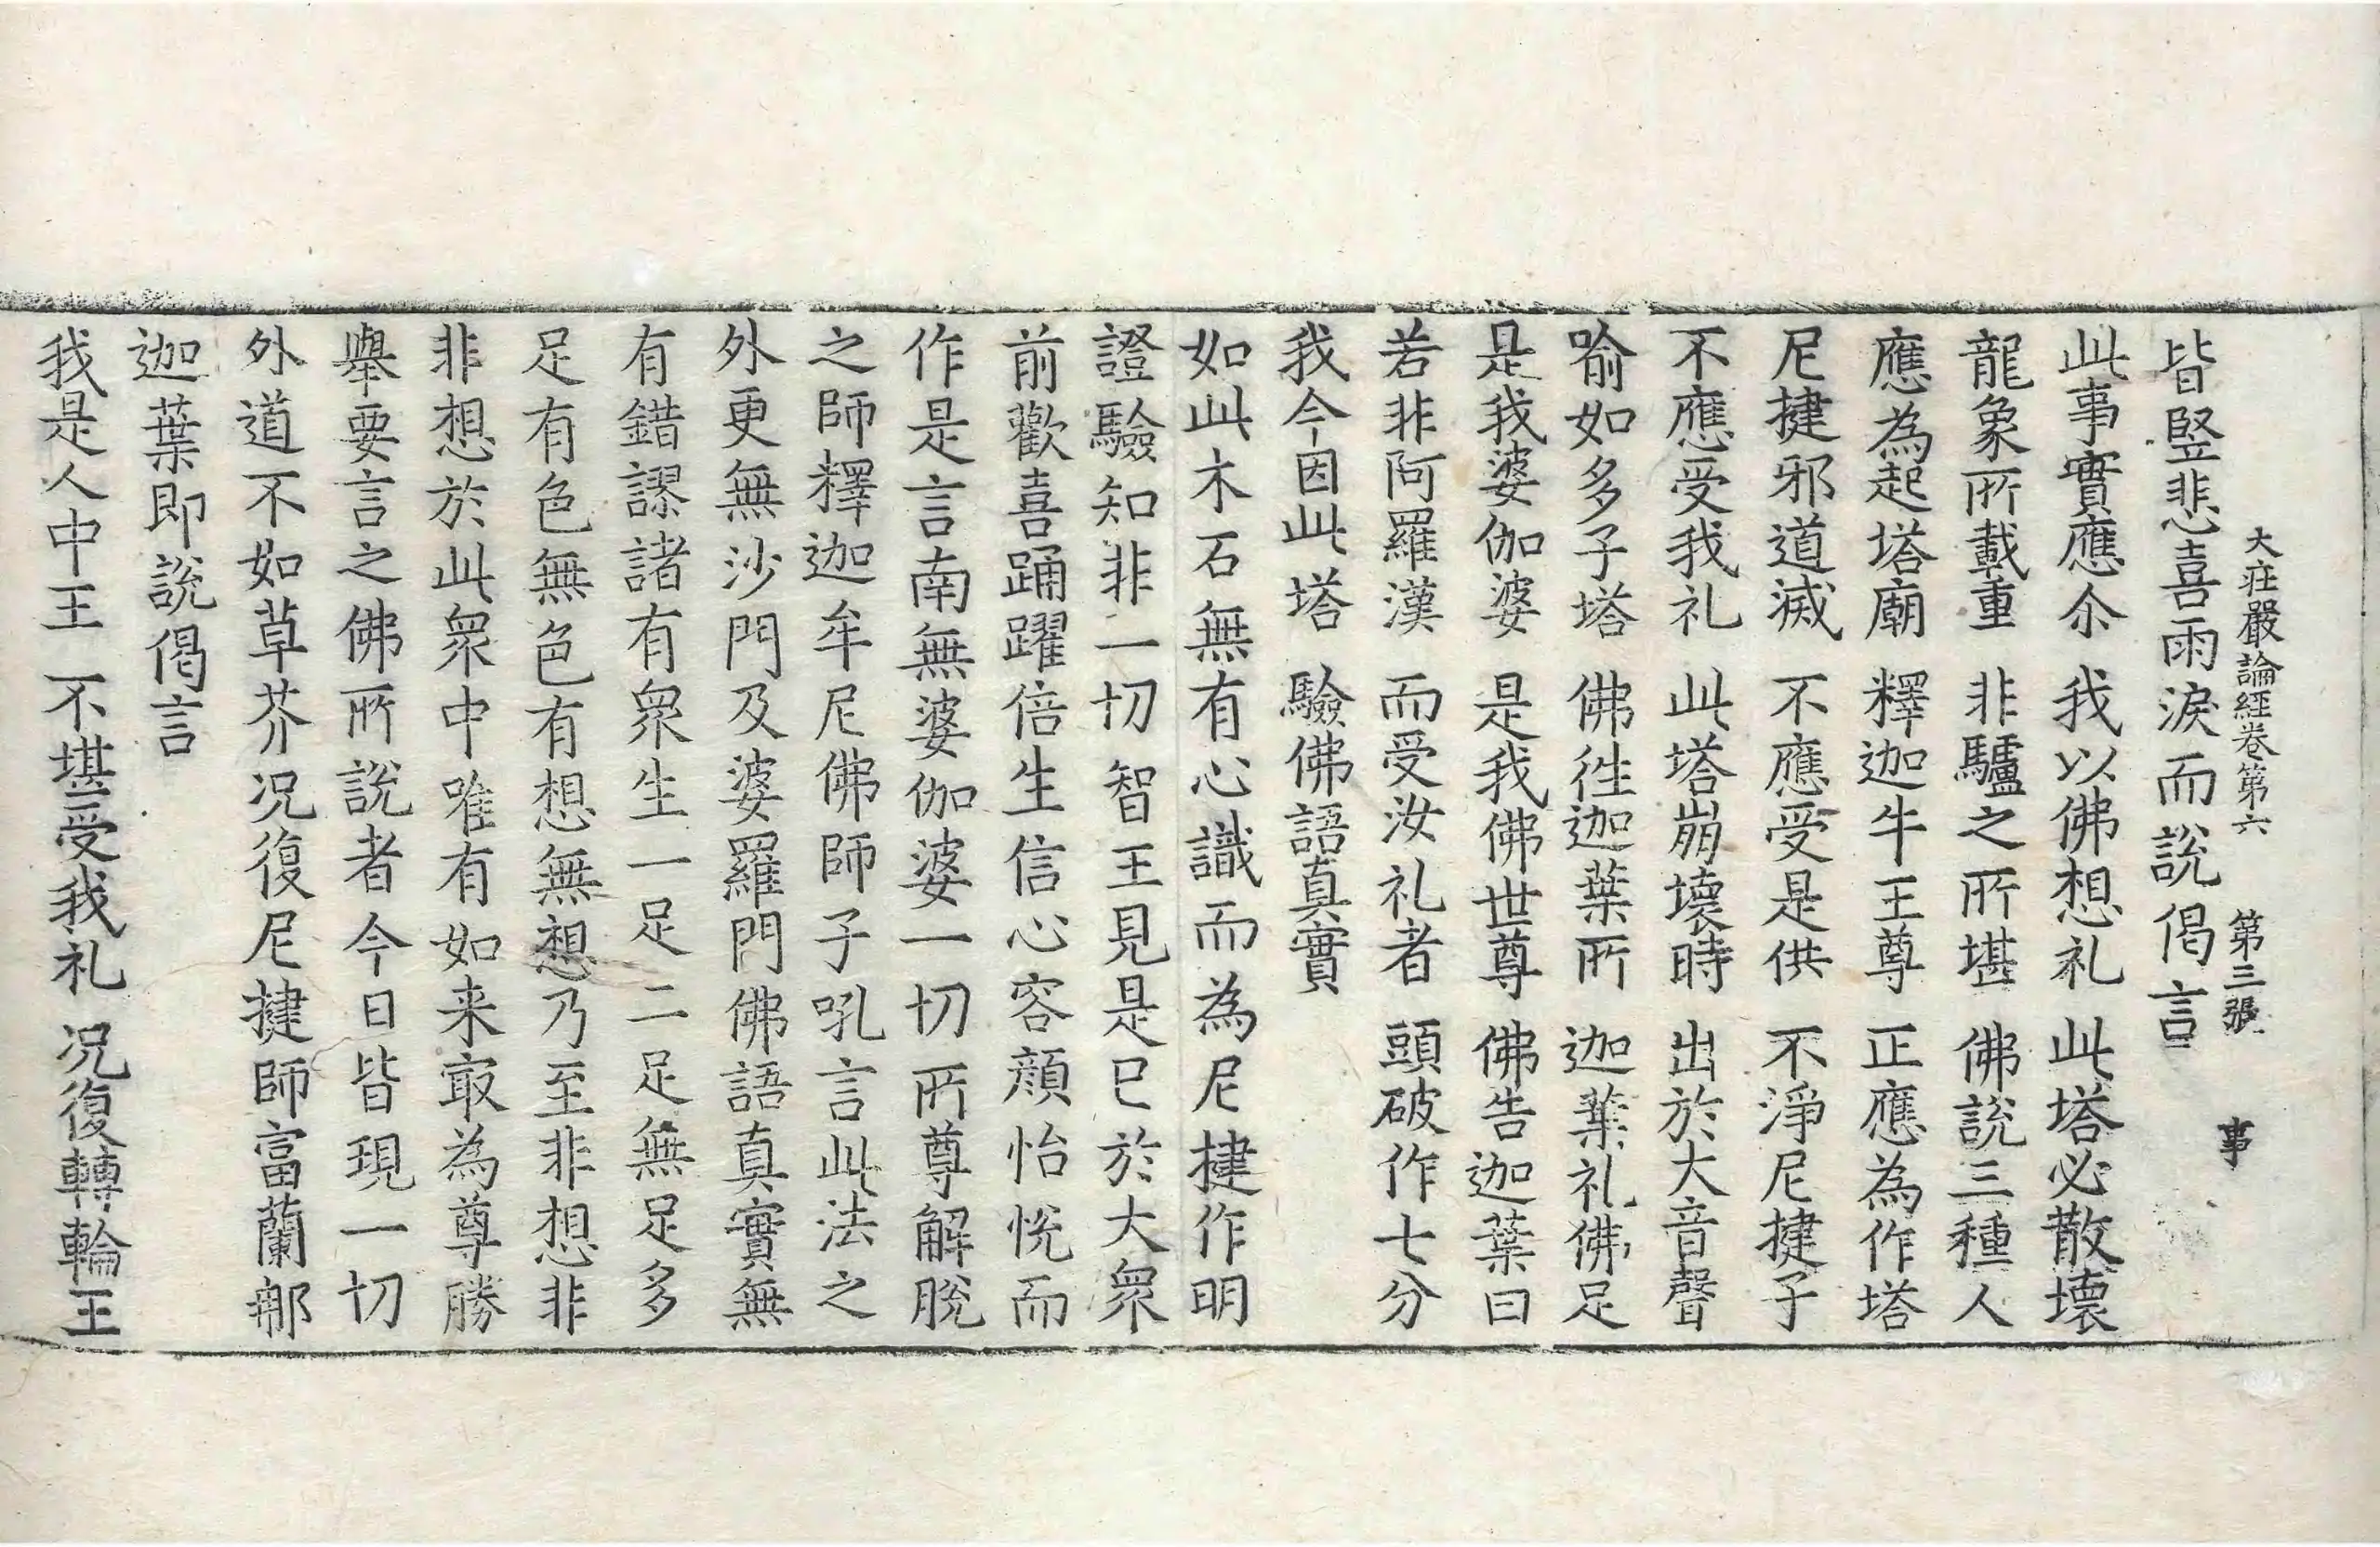 大莊嚴論經卷第六 第三張 事
皆竪悲喜雨淚而說偈言
此事實應尒 我以佛想礼 此塔必散壞
龍象所載重 非驢之所堪 佛說三種人
應為起塔廟 釋迦牛王尊 正應為作塔
尼揵邪道滅 不應受是供 不淨尼揵子
不應受我礼 此塔崩壞時 出於大音聲
喻如多子塔 佛徃迦葉所 迦葉礼佛足
是我婆伽婆 是我佛世尊 佛告迦葉曰
若非阿羅漢 而受汝礼者 頭破作七分
我今因此塔 驗佛語真實
如此木石無有心識而為尼揵作明
證驗知非一切智王見是已於大衆
前歡喜踊躍倍生信心容顏怡恱而
作是言南無婆伽婆一切所尊解脫
之師釋迦牟尼佛師子吼言此法之
外更無沙門及婆羅門佛語真實無
有錯謬諸有衆生一足二足無足多
足有色無色有想無想乃至非想非
非想於此衆中唯有如来㝡為尊勝
舉要言之佛所說者今日皆現一切
外道不如草芥况復尼揵師富蘭那
迦葉即說偈言
我是人中王 不堪受我礼 况復轉輪王